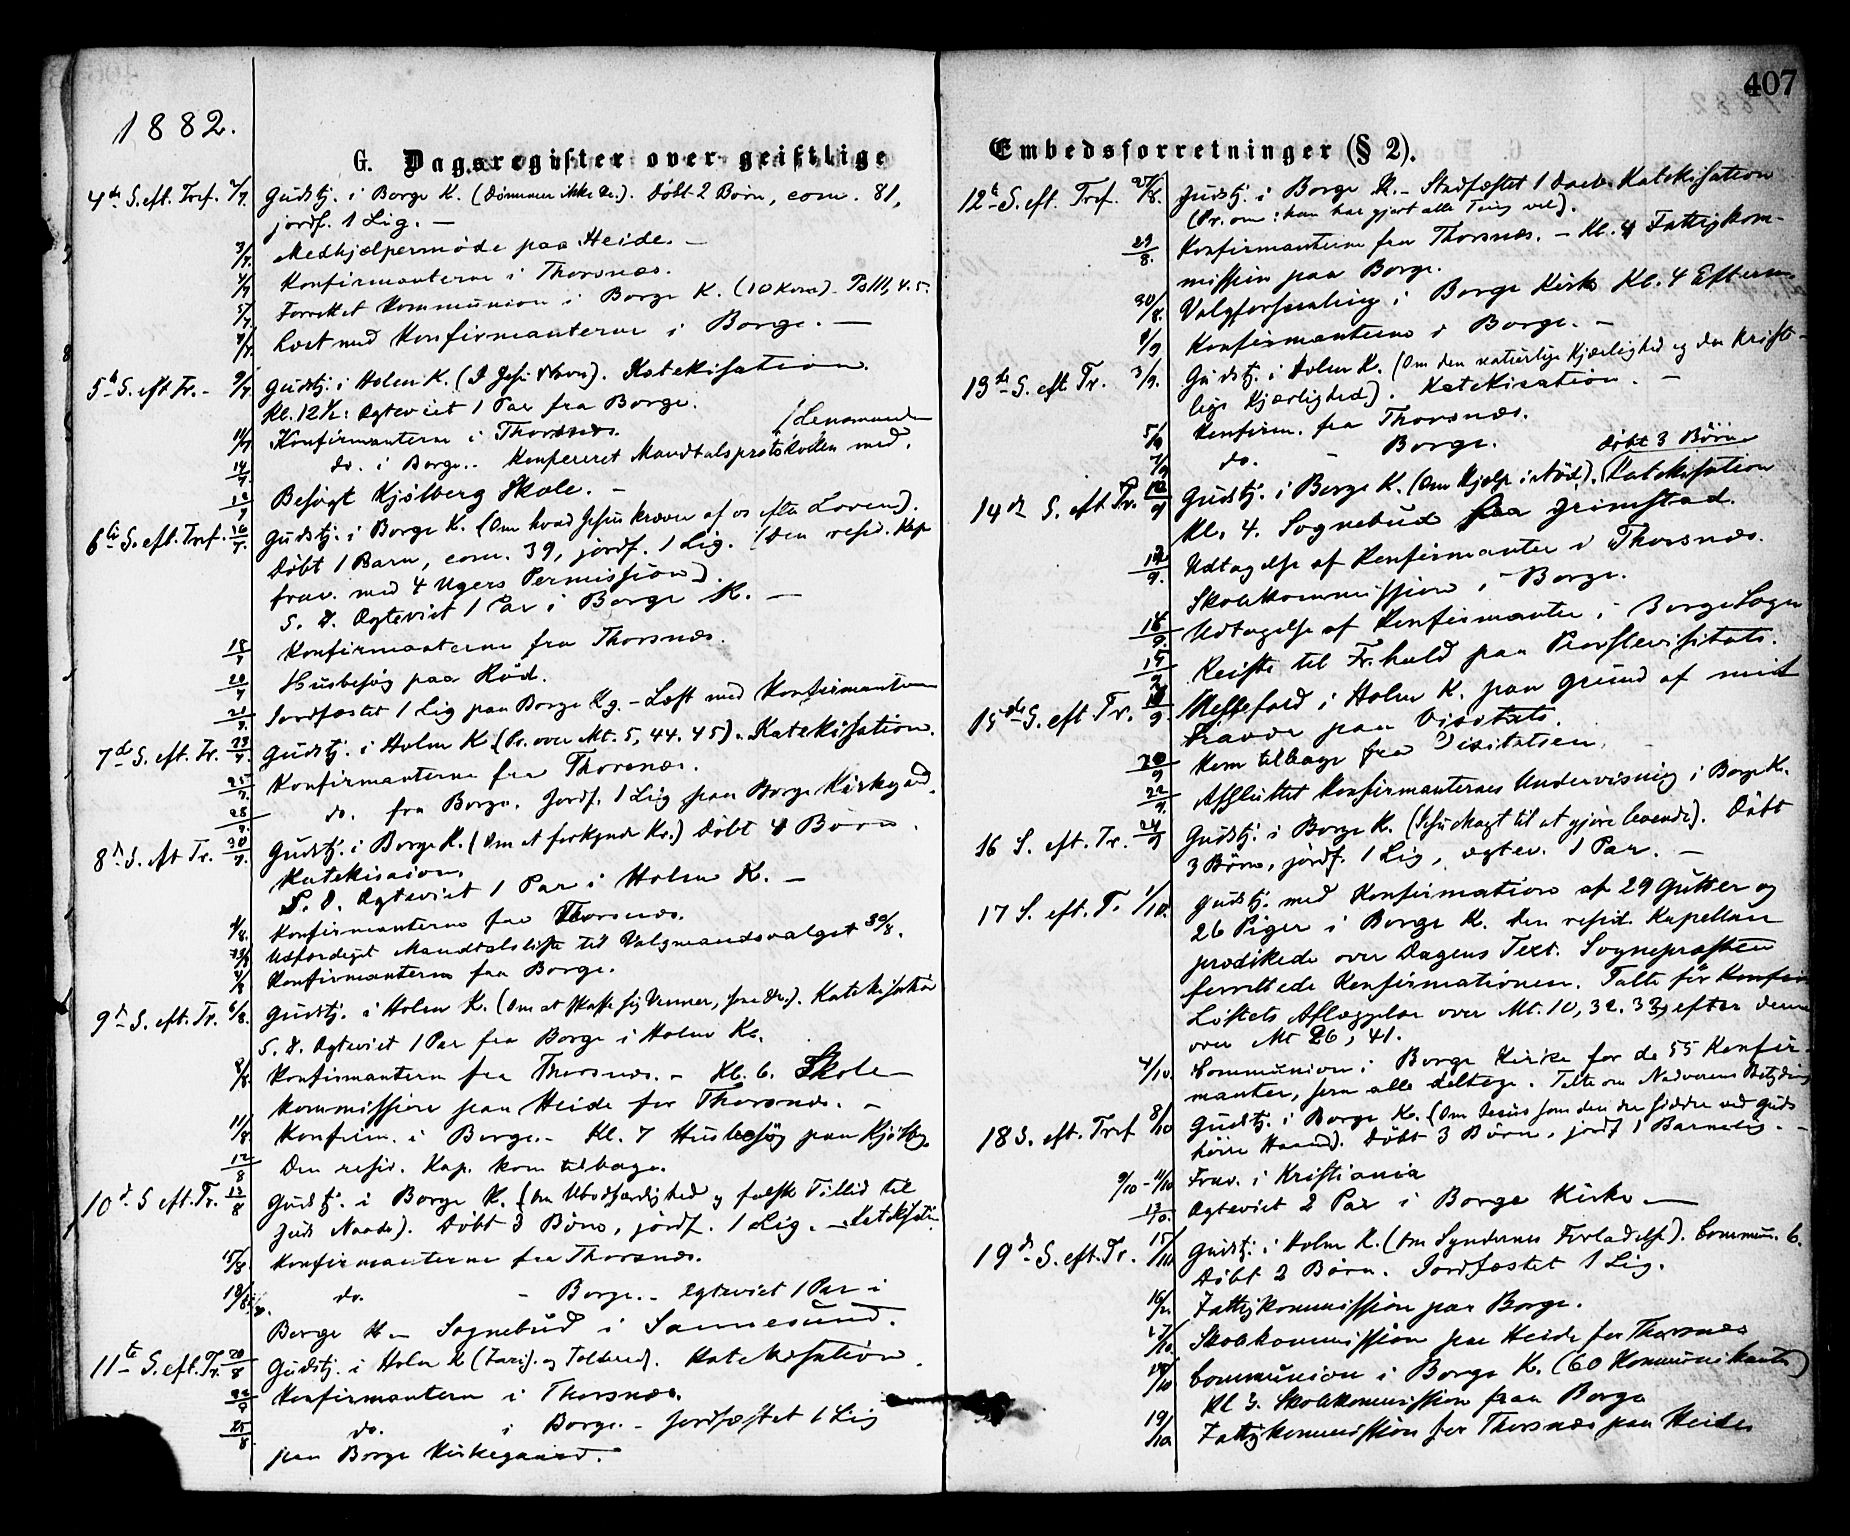 407
1882.
G. Dagsregister over geistlige
4de S. eft. Tref. 2/7. Gudstj. i Borge K. (Dömmer ikke &c.). Döbt 2 Börn, com. 81,
jordf. 1 Lig. —
3/7. Medhjælpermöde paa Heide. —
4/7 Konfirmanterne i Thorsnæs.
5/7. Forrettet Kommunion i Borge K. (10 Kom.)
7/7. Læst med Konfirmanterne i Borge. —
5te S. eft Tr. - 9/7 Gudstj. i Holm K. (I Jesu Navn). Katekisation.
Kl. 12½: Ægteviet 1 Par fra Borge.
11/7 Konfirmanterne i Thorsnæs. (Lensmanden
14/7. do. i Borge. - Konfereret Mandtalsprotokollen med.
Besögt Kjölberg Skole. —
6te S. eft. Tref. 16/7. Gudstj. i Borge K. (Om hvad Jesus kræver af os efter Loven).
Döbt 1 Barn, com. 39, jordf. 1 Lig. (Den resid. Kap
frav. med 4 Ugers Permission).
S. D. Ægteviet 1 Par i Borge K. —
18/7 Konfirmanterne fra Thorsnæs.
20/7 Husbesög paa Röd.
21/7. Jordfæstet 1 Lig paa Borge Kg. - Læst med Konfirmanterne
7de S. eft. Tr. 23/7. Gudstj. i Holm K. (Pr. over Mt. 5, 44. 45). Katekisation.
25/7. Konfirmanterne fra Thorsnæs.
28/7. do. fra Borge. Jordf. 1 Lig paa Borge Kirkegård.
8de S. eft Tr. 30/7. Gudstj. i Borge K. (Om at forkynde Kr.) Döbt 4 Börn.
Katekisaion.
S. D. Ægteviet 1 Par i Holm K. —
1/8. Konfirmanterne fra Thorsnæs.
Udfærdiget Mandtalsliste til Valgmandsvalget 30/8.
4/8 Konfirmanterne fra Borge.
9de S. eft. Tr. 6/8. Gudstj. i Holm K. (Om at skaffe sig Venner, som &c.). Katekisation
S. D. Ægteviet 1 Par fra Borge i Holm K.
8/8 Konfirmanterne fra Thorsnæs. - Kl. 6. Skole-
kommission paa Heide for Thorsnæs. —
11/8 Konfirm. i Borge. - Kl. 7 Husbesög paa Kjölbg.
12/8 Den resid. Kap. kom tilbage.
10de S eft. Tr. 13/8 Gudstj. i Borge K. (Om Ubodfærdighed og falsk Tillid til
Guds Naade). Döbt 3 Börn, jordf. 1 Lig. - Katekisati.
15/8. Konfirmanterne fra Thorsnæs.
18/8. do. - Borge. - Ægteviet 1 Par i
Borge K - Sognebud i Sannesund.
11te S. eft. Tr. 20/8 Gudstj. i Holm K (Faris. og Tolderen). Katekisation.
22/8 Konfirmanterne i Thorsnæs.
25/8. do. i Borge. - Jordfæstet 1 Lig
paa Borge Kirkegaard.
Embedsforretninger (§ 2).
12te S. eft. Tref. 27/8. Gudstj. i Borge K. - Stadfæstet 1 Daab. Katekisation
(Pr. om: han har gjort alle Ting vel).
29/8. Konfirmanterne fra Thorsnæs. - Kl. 4 Fattigkom-
mission paa Borge.
30/8. Valgforsamling i Borge Kirke Kl. 4 Efterm.
1/9 Konfirmanterne i Borge. —
13de S. eft Tr. 3/9. Gudstj. i Holm K. (Om den naturlige Kjærlighed og den kriste-
lige Kjærlighed). Katekisation. —
5/9 Konfirm. fra Thorsnæs.
7/9 do. - Borge. Döbt 3 Börn
14de S. eft Tr. 10/9 Gudstj. i Borge K. (Om Hjælp i Nöd). (Katekisation
Kl. 4. Sognebud paa Grimstad.
12/9. Udtagelse af Konfirmanter i Thorsnæs.
Skolekommission i Borge.
Udtagelse af Konfirmanter i Borge Sogn
15/9 Reiste til Fr.hald paa Provstevisitats.
15de S. eft Tr. 17/9 Messefald i Holm K. paa Grund af mit
Fravær paa Visitats.
20/9 Kom tilbage fra Visitatsen.
22/9. Afsluttet Konfirmanternes Undervisning i Borge K.
16 S. eft. Tr. 24/9 Gudstj. i Borge K. (Jesu Magt til at gjöre levende). Döbt
3 Börn, jordf. 1 Lig, ægtev. 1 Par. —
17 S. eft. T. 1/10. Gudstj. med Konfirmation af 29 Gutter og
26 Piger i Borge K. Den resid. Kapellan
prædikede over Dagens Text. Sognepræsten
forrettede Konfirmationen. Talte för Konfirm
Löftets Aflæggelse over Mt. 10, 32. 33, efter denne
over Mt 26, 41.
4/10. Communion i Borge Kirke for de 55 Konfir-
manter, som alle deltoge. Talte om Nadverens Betydning
18 S. eft. Tref 8/10 Gudstj. i Borge K. (Om Jesus som den der sidder ved Guds
höire Haand). Döbt 3 Börn, jordf 1 Barnelig. —
9/10 - 11/10 Frav. i Kristiania
Ægteviet 2 Par i Borge Kirke —
19de S. eft. Tr. 15/10 Gudstj. i Holm K. (Om Syndernes Forladelse). Commun. 6.
Döbt 2 Börn. Jordfæstet 1 Lig.
16/10. Fattigkommission paa Borge.
17/10. Skolekommission paa Heide for Thorsnæs
18/10 Communion i Borge K. (60 Kommunikanter)
Kl 3. Skolekommission paa Borge
19/10 Fattigkommission for Thorsnæs paa Heide